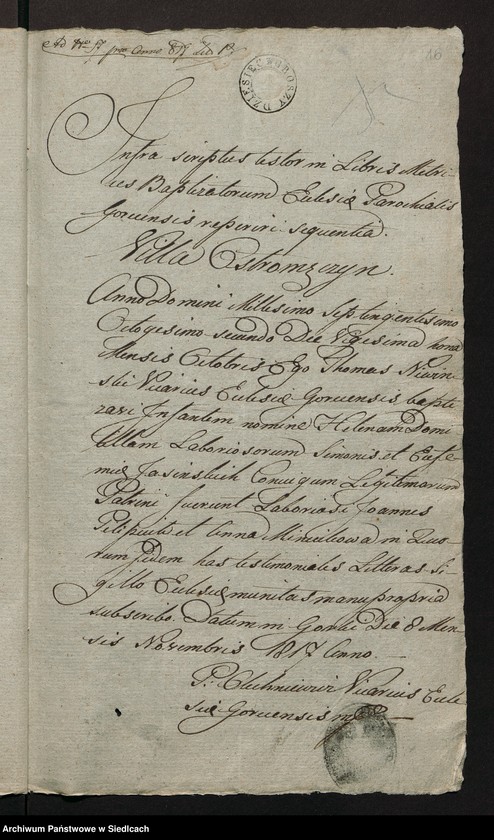 Ad Nro 17 pro Anno 819
18
DZIESIĘĆ GROSZY
Infra scriptus testor in Libris Metri
ces Baptizatorum Eclesiæ Parochialis
Goruensis reperiri sequentia.
Villa Ostromęczyn.
Anno Domini Millesimo Septingentesimo
Octogesimo secundo Die Vigesima nona
Mensis Octobris Ego Thomas Niwin
ski Vicarius Eclesiæ Goruensis bapti
zavi Infantem nomine Helenam Domi
cellam Laboriosorum Simonis et Eufe
miæ Jasinskich Coniugum Legitimorum
Patrini fuerunt Laboriosi Joannes
Pilipiuk et Anna Miniukowa in Quo
rum fidem has testimoniales Litteras Si-
gillo Eclesiæ munitas manu propria
subscribo. Datum in Gorki Die 8 Men
sis Novembris 1817 Anno.
P: Vicarius Ecle
siæ Goruensis
Archiwum Państwowe w Siedlcach